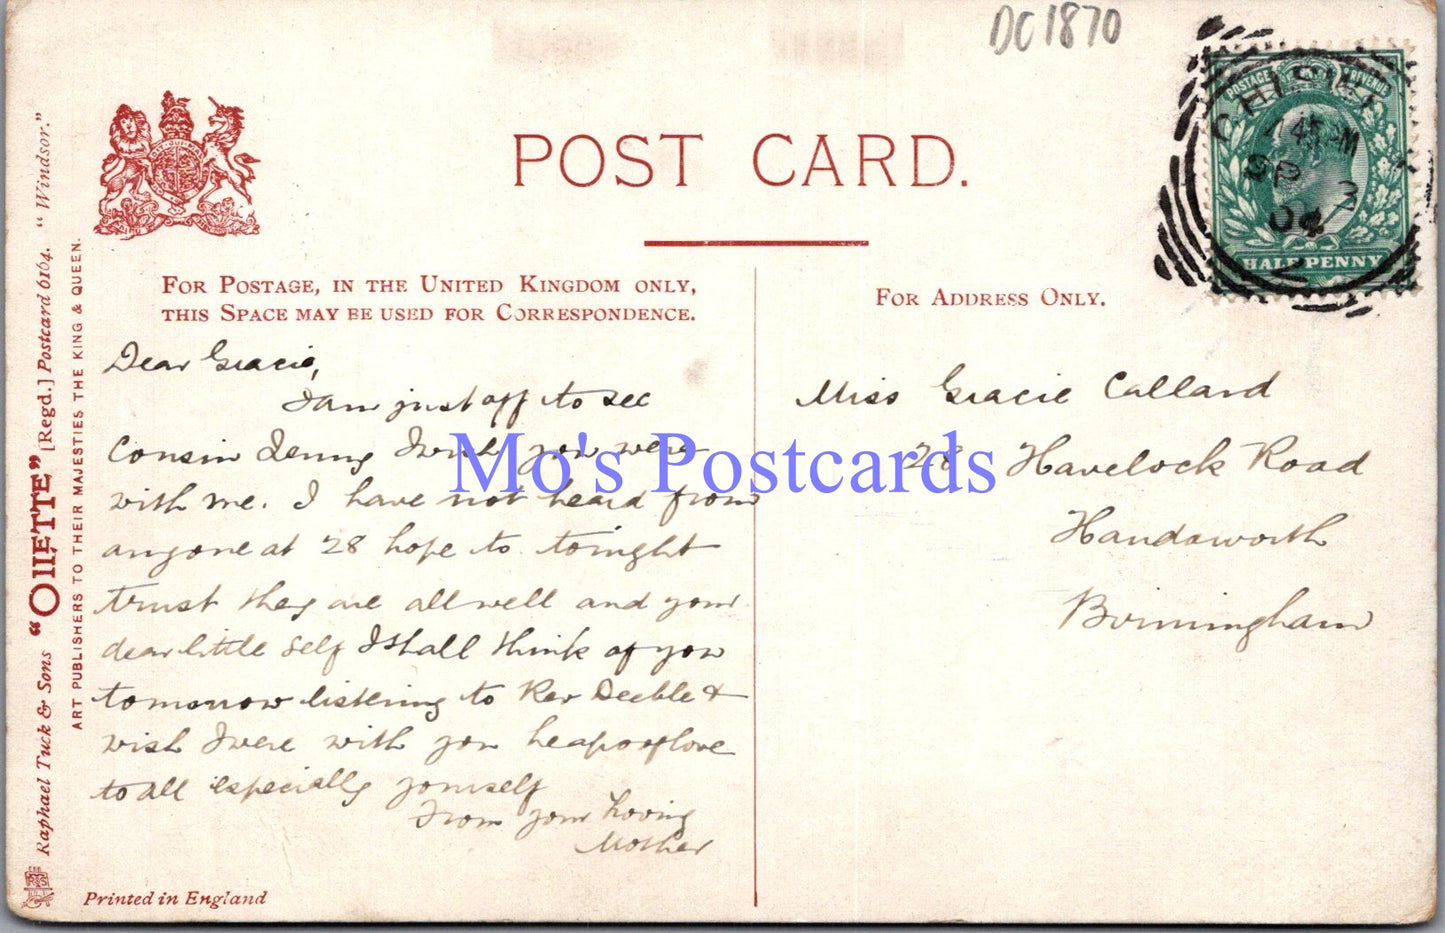 DC1870
POST CARD.
POSTAGE REVENUE
CHISWICK
7 45 PM
SP 3
04
2
HALF PENNY
FOR POSTAGE, IN THE UNITED KINGDOM ONLY,
THIS SPACE MAY BE USED FOR CORRESPONDENCE.
FOR ADDRESS ONLY.
Dear Gracie,
I am just off to see
Cousin Jenny I wish you were
with me. I have not heard from
anyone at 28 hope to tonight
trust they are all well and your
dear little self I shall think of you
tomorrow listening to Rev Deeble &
wish I were with you heaps of love
to all especially yourself
From your Loving
Mother
Miss Gracie Callard
28 Havelock Road
Handsworth
Birmingham
Mo's Postcards
Raphael Tuck & Sons "OILETTE" [Regd.] Postcard 6164. "Windsor."
ART PUBLISHERS TO THEIR MAJESTIES THE KING & QUEEN.
Printed in England